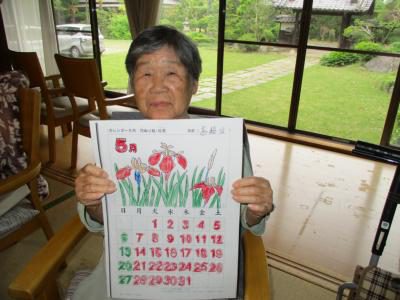 5月
日 月 火 水 木 金 土
1 2 3 4 5
6 7 8 9 10 11 12
13 14 15 16 17 18 19
20 21 22 23 24 25 26
27 28 29 30 31